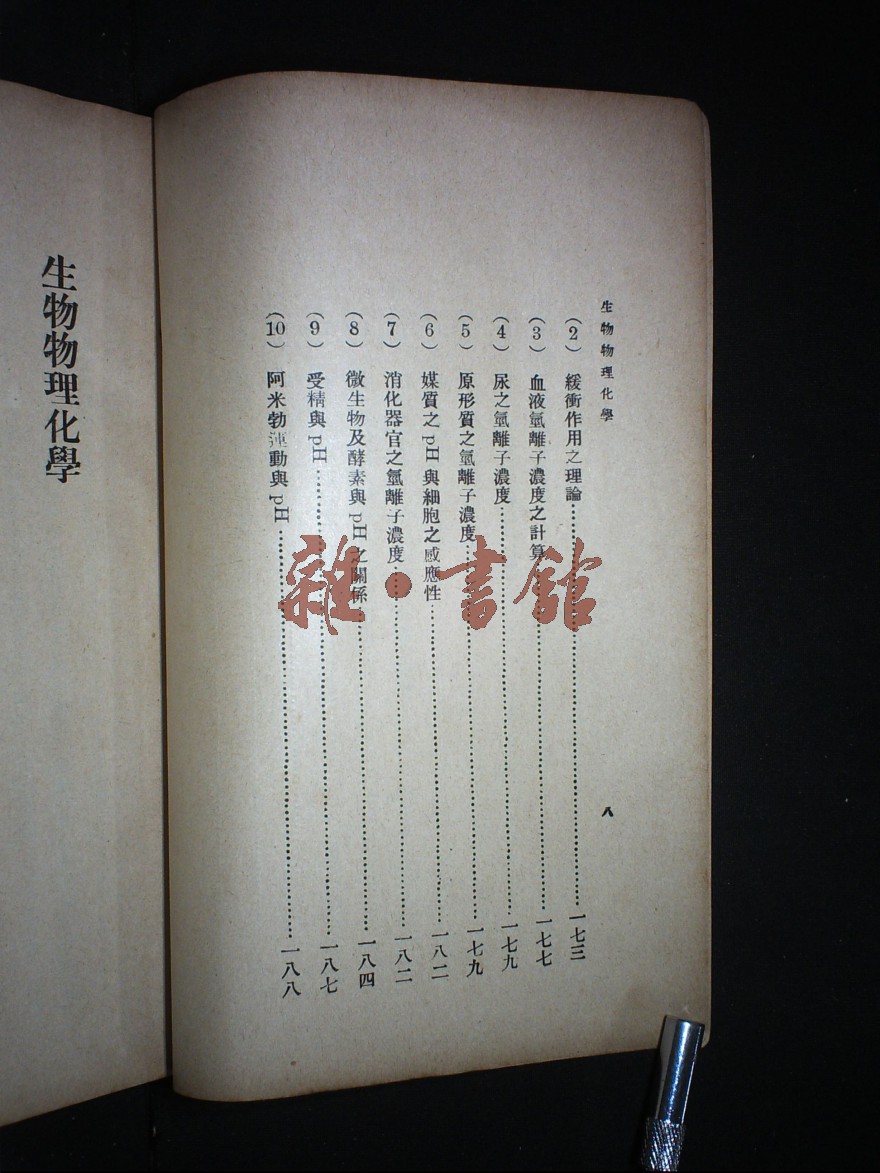 生物物理化學
八
(2) 緩衝作用之理論……一七三
(3) 血液氫離子濃度之計算……一七七
(4) 尿之氫離子濃度……一七九
(5) 原形質之氫離子濃度……一七九
(6) 媒質之pH與細胞之感應性……一八二
(7) 消化器官之氫離子濃度……一八二
(8) 微生物及酵素與pH之關係……一八四
(9) 受精與pH……一八七
(10) 阿米勃運動與pH……一八八
生物物理化學
雜·書館